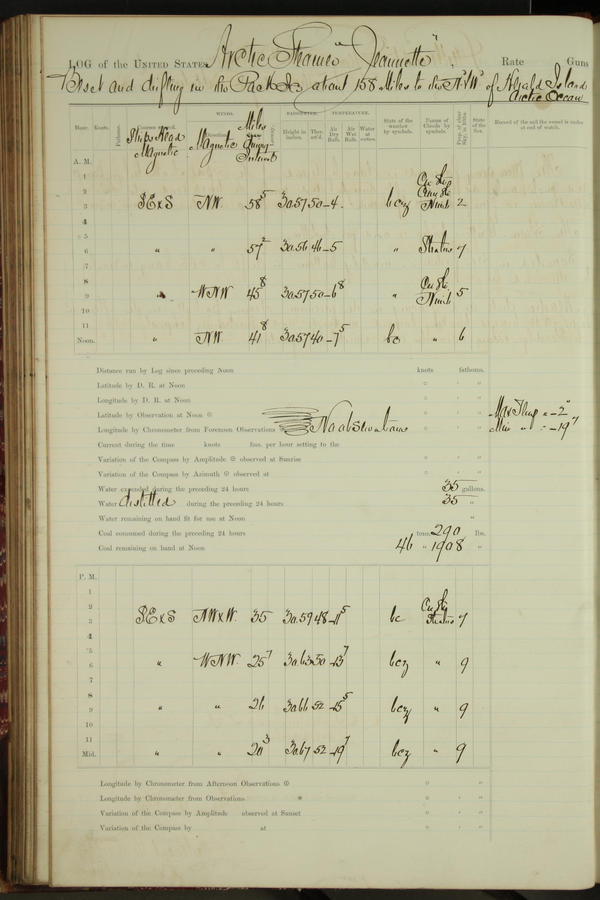 LOG of the UNITED STATES Arctic Steamer "Jeannette" Rate Guns
Beset and drifting in the Pack Ice about 158 Miles to the NW of Herald Island
Arctic Ocean
WINDS. BAROMETER. TEMPERATURE.
Hour. Knots. Fathoms. Ship's Head Magnetic Magnetic Miles per Height in inches. Ther. att'd. Air Dry Bulb. Air Wet Bulb. Water at surface. State of the weather by symbols. Forms of Clouds by symbols. State of the Sea. Record of the sail the vessel is under at end of watch.
A. M.
1
2
3 SExS NW 58⁵ 30.57 50 -4. bcz 2
4
5
6 " " 57² 30.56 46 -5 " Stratus 7
7
8
9 " WNW 45⁸ 30.57 50 -6⁸ " 5
10
11
Noon. " NW 41⁸ 30.57 40 -7⁵ bc " 6
Distance run by Log since preceding Noon knots fathoms.
Latitude by D. R. at Noon ° ' "
Longitude by D. R. at Noon ° ' "
Latitude by Observation at Noon ° ' " Max Temp " -2°
Longitude by Chronometer from Forenoon Observations No observations ° ' " Min " " -19⁷
Current during the time knots fms. per hour setting to the
Variation of the Compass by Amplitude observed at Sunrise ° ' "
Variation of the Compass by Azimuth observed at ° ' "
Water expended during the preceding 24 hours 35 gallons.
Water distilled during the preceding 24 hours 35 "
Water remaining on hand fit for use at Noon "
Coal consumed during the preceding 24 hours tons, 290 lbs.
Coal remaining on hand at Noon 46 " 1908 "
P. M.
1
2
3 SExS NWxW. 35 30.59 48 -11⁵ bc Stratus 7
4
5
6 " WNW. 25⁷ 30.63 50 -13⁷ bcz " 9
7
8
9 " " 26 30.66 52 -15⁵ bcz " 9
10
11
Mid. " " 20³ 30.67 52 -19⁷ bcz " 9
Longitude by Chronometer from Afternoon Observations ° ' "
Longitude by Chronometer from Observations * ° ' "
Variation of the Compass by Amplitude observed at Sunset ° ' "
Variation of the Compass by at ° ' "